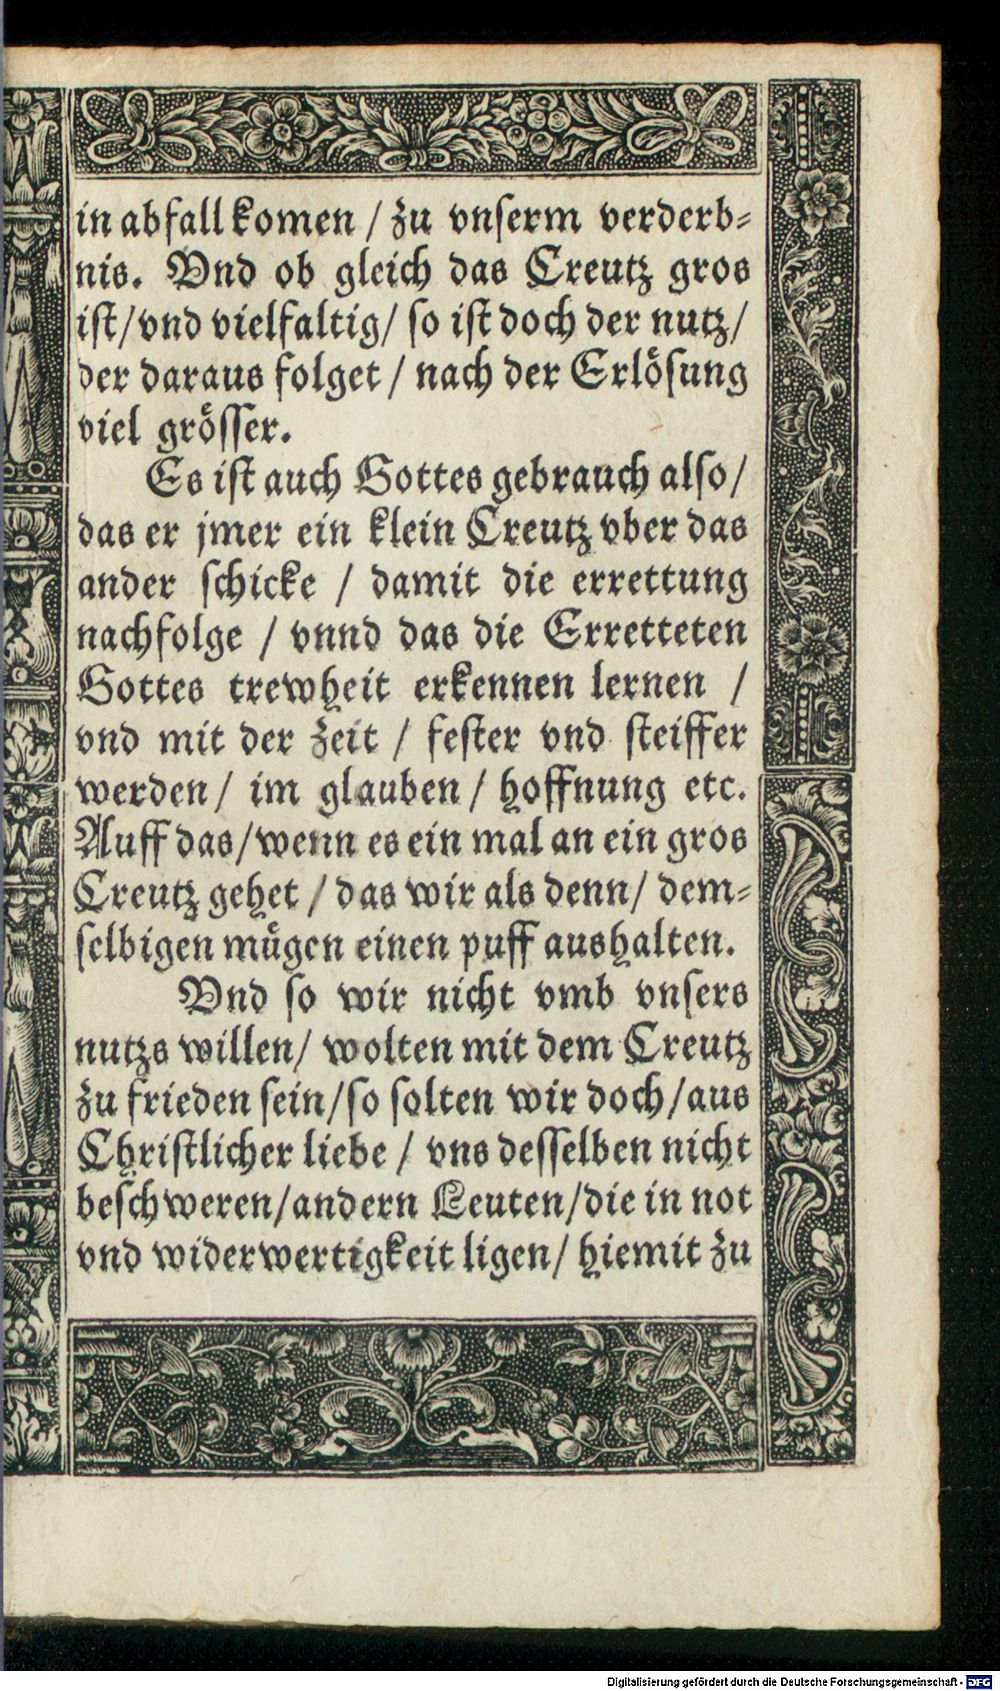 in abfall komen / zu vnserm verderb-
nis. Vnd ob gleich das Creutz gros
ist/ vnd vielfaltig/ so ist doch der nutz/
der daraus folget / nach der Erlösung
viel grösser.
Es ist auch Gottes gebrauch also/
das er jmer ein klein Creutz vber das
ander schicke / damit die errettung
nachfolge / vnnd das die Erretteten
Gottes trewheit erkennen lernen /
vnd mit der zeit / fester vnd steiffer
werden/ im glauben / hoffnung etc.
Auff das/ wenn es ein mal an ein gros
Creutz gehet / das wir als denn/ dem-
selbigen mügen einen puff aushalten.
Vnd so wir nicht vmb vnsers
nutzs willen/ wolten mit dem Creutz
zu frieden sein/ so solten wir doch/ aus
Christlicher liebe / vns desselben nicht
beschweren/ andern Leuten/ die in not
vnd widerwertigkeit ligen/ hiemit zu
Digitalisierung gefördert durch die Deutsche Forschungsgemeinschaft - DFG